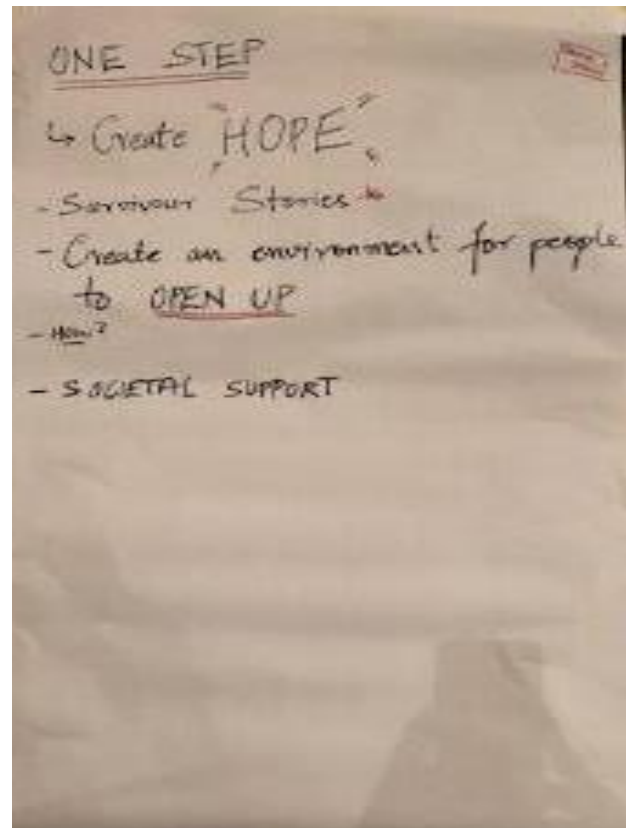 ONE STEP
↳ Create "HOPE"
- Survivour Stories *
- Create an environment for people
to OPEN UP
- How?
- SOCIETAL SUPPORT